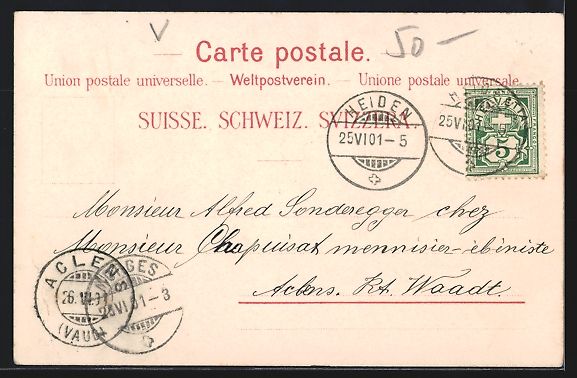 V
50 —
— Carte postale. —
Union postale universelle. – Weltpostverein. – Unione postale universale.
SUISSE. SCHWEIZ. SVIZZERA.
HEIDEN
25 VI 01 – 5
25 VI 01
5
Monsieur Alfred Sonderegger chez
Monsieur Chapuisat mennisier-ébéniste
Aclens. Kt. Waadt.
ACLENS
26. VI. 01
(VAUD)
MORGES
26 VI 01 – 3